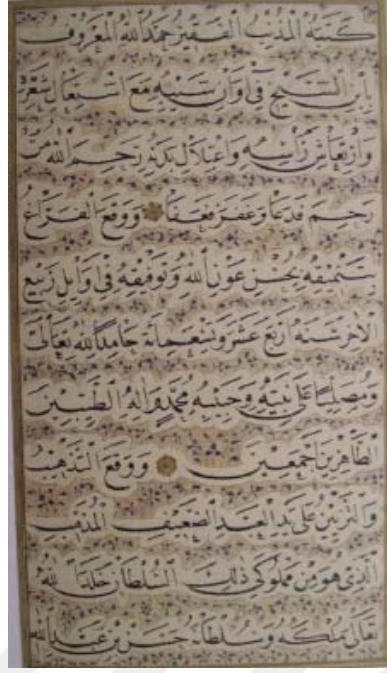 كتبه المذنب الفقير حمد الله المعروف
بابن الشيخ في اوان شيبه مع اشتعال شعر
وارتعاش رأسه واعتلال بدنه رحم الله من
رحم فدعا وغفر فعفا ووقع الفراغ
تنميقه بحسن عون الله وتوفيقه في اوايل ربيع
الاخر سنه اربع عشر وتسعمائة حامدا لله تعالى
ومصليا على نبيه وحبيبه محمد واله الطيبين
الطاهرين اجمعين ووقع التذهيب
والتزيين على يد العبد الضعيف المذهب
الذي هو من مملوكي ذلك السلطان خلد الله
تعالى ملكه وسلطانه حسن بن عبد الله